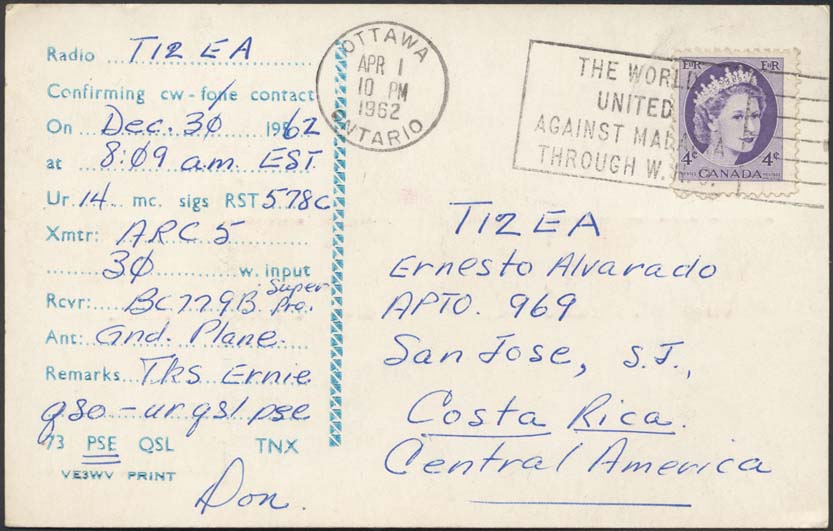 Radio TI2EA
Confirming cw-fone contact
On Dec. 30 1962
at 8:09 a.m. EST.
Ur 14 mc. sigs RST 578c
Xmtr: ARC 5
30 w. input
Rcvr: BC779B Super Pro.
Ant: Gnd. Plane.
Remarks Tks Ernie
qso - ur qsl pse
73 PSE QSL TNX
VE3WV PRINT
Don.
OTTAWA
APR 1
10 PM
1962
ONTARIO
THE WORLD
UNITED
AGAINST MALARIA
THROUGH W.
E R E R
4¢ 4¢
CANADA
TI2EA
Ernesto Alvarado
APTO. 969
San Jose, S.J.,
Costa Rica.
Central America